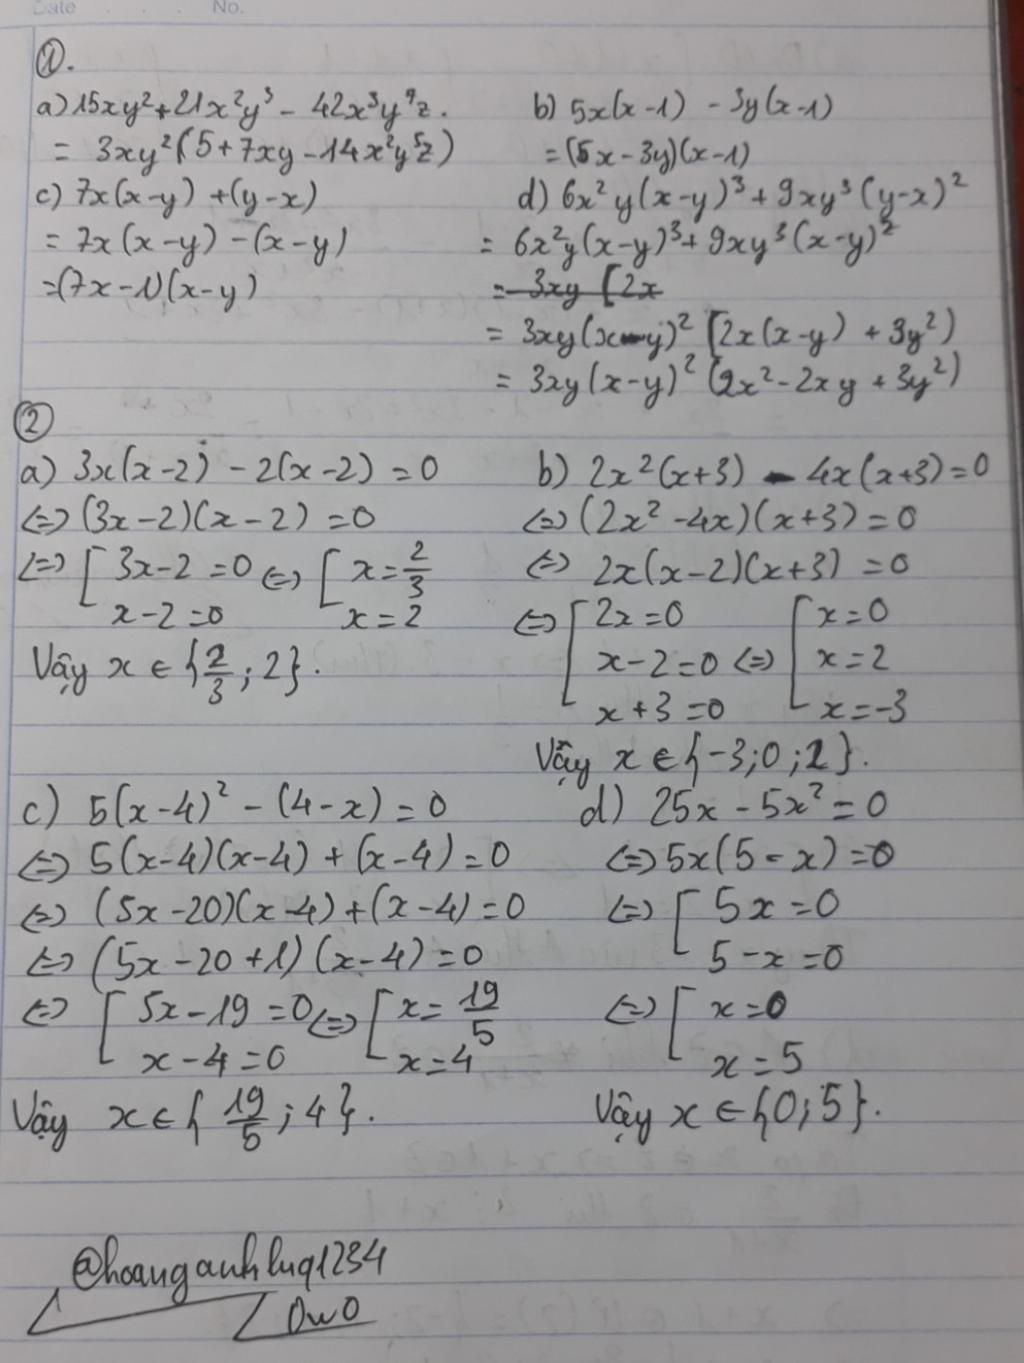 Date . . . No.
①.
a) 15xy² + 21x²y³ - 42x³y⁴z.
= 3xy²(5 + 7xy - 14x²y⁵z)
b) 5x(x-1) - 3y(x-1)
= (5x - 3y)(x-1)
c) 7x(x-y) + (y-x)
= 7x(x-y) - (x-y)
= (7x-1)(x-y)
d) 6x²y(x-y)³ + 9xy³(y-x)²
= 6x²y(x-y)³ + 9xy³(x-y)²
= 3xy [2x
= 3xy(x-y)² [2x(x-y) + 3y²)
= 3xy(x-y)² (2x² - 2xy + 3y²)
②
a) 3x(x-2) - 2(x-2) = 0
<=> (3x-2)(x-2) = 0
<=> [ 3x-2 = 0 <=> [ x = 2/3
x-2 = 0 x = 2
Vậy x ∈ {2/3 ; 2}.
b) 2x²(x+3) - 4x(x+3) = 0
<=> (2x² - 4x)(x+3) = 0
<=> 2x(x-2)(x+3) = 0
<=> [ 2x = 0 [ x = 0
x-2 = 0 <=> x = 2
x+3 = 0 x = -3
Vậy x ∈ {-3; 0; 2}.
c) 5(x-4)² - (4-x) = 0
<=> 5(x-4)(x-4) + (x-4) = 0
<=> (5x-20)(x-4) + (x-4) = 0
<=> (5x-20+1)(x-4) = 0
<=> [ 5x-19 = 0 <=> [ x = 19/5
x-4 = 0 x = 4
Vậy x ∈ { 19/5 ; 4}.
d) 25x - 5x² = 0
<=> 5x(5-x) = 0
<=> [ 5x = 0
5-x = 0
<=> [ x = 0
x = 5
Vậy x ∈ {0; 5}.
@hoanganhluq1234
OwO